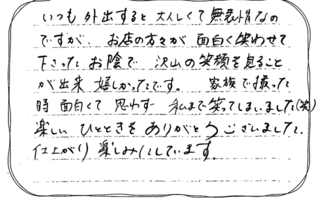 いつも外出すると大人しくて無表情なの
ですが、お店の方々が面白く笑わせて
下さったお陰で沢山の笑顔を見ること
が出来嬉しかったです。 家族で撮った
時面白くて思わず私まで笑てしまいました(笑)
楽しいひとときをありがとうございました。
仕上がり楽しみにしています。